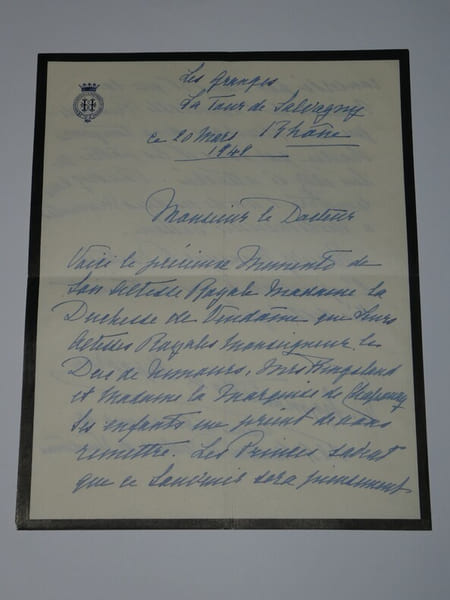 Les Granges
La Tour de Salvagny
ce 20 Mars Rhône
1948
Monsieur le Docteur
Voici le précieux Memento de
Son Altesse Royale Madame la
Duchesse de Vendôme que Leurs
Altesses Royales Monseigneur le
Duc de Nemours, Mrs Kingsland
et Madame la Marquise de Chaponay
ses enfants me prient de vous
remettre. Les Princes savent
que ce Souvenir sera pieusement